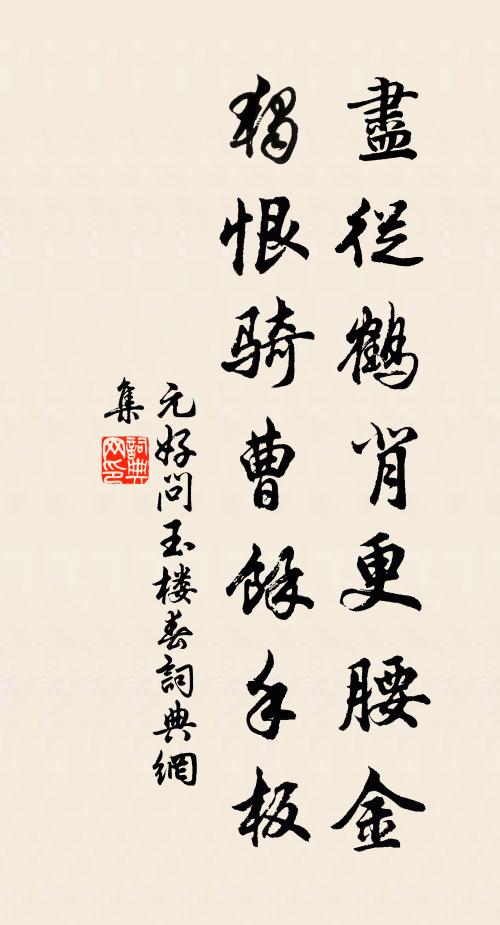 盡從鶴背更腰金
獨恨騎曹餘手板
元好問玉楼春詞典網
集
詞典網印